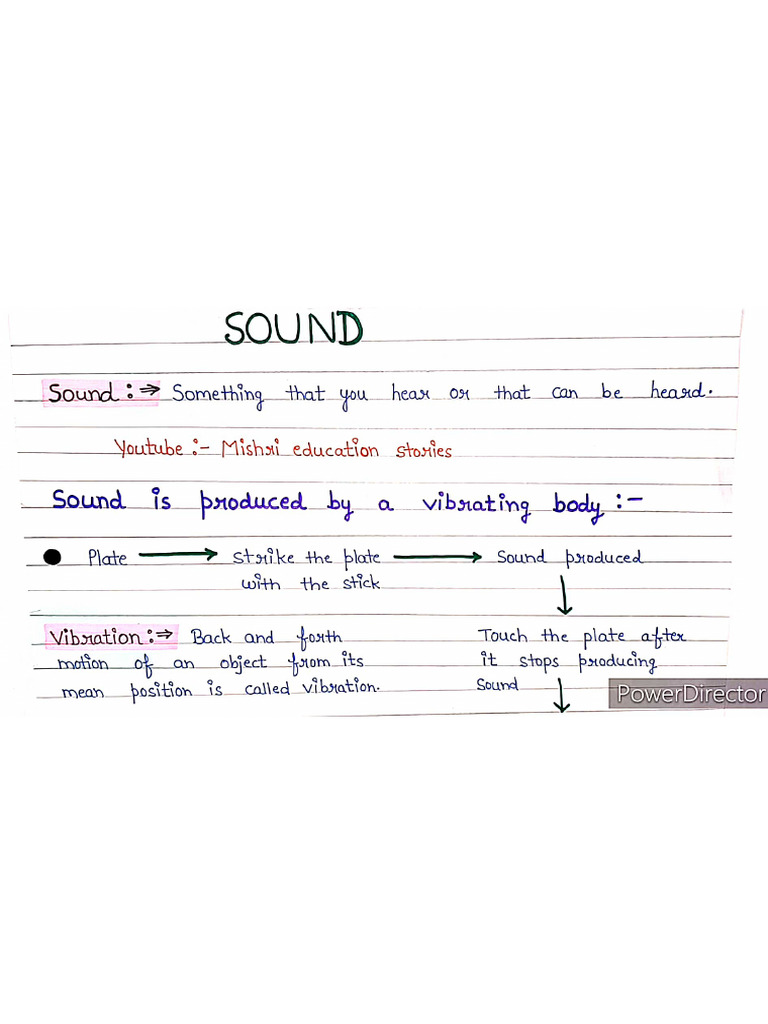 SOUND
Sound :⇒ Something that you hear or that can be heard.
Youtube :- Mishri education stories
Sound is produced by a vibrating body :-
● Plate → strike the plate → Sound produced
with the stick
↓
Vibration :⇒ Back and forth
motion of an object from its
mean position is called vibration.
Touch the plate after
it stops producing
Sound ↓
PowerDirector